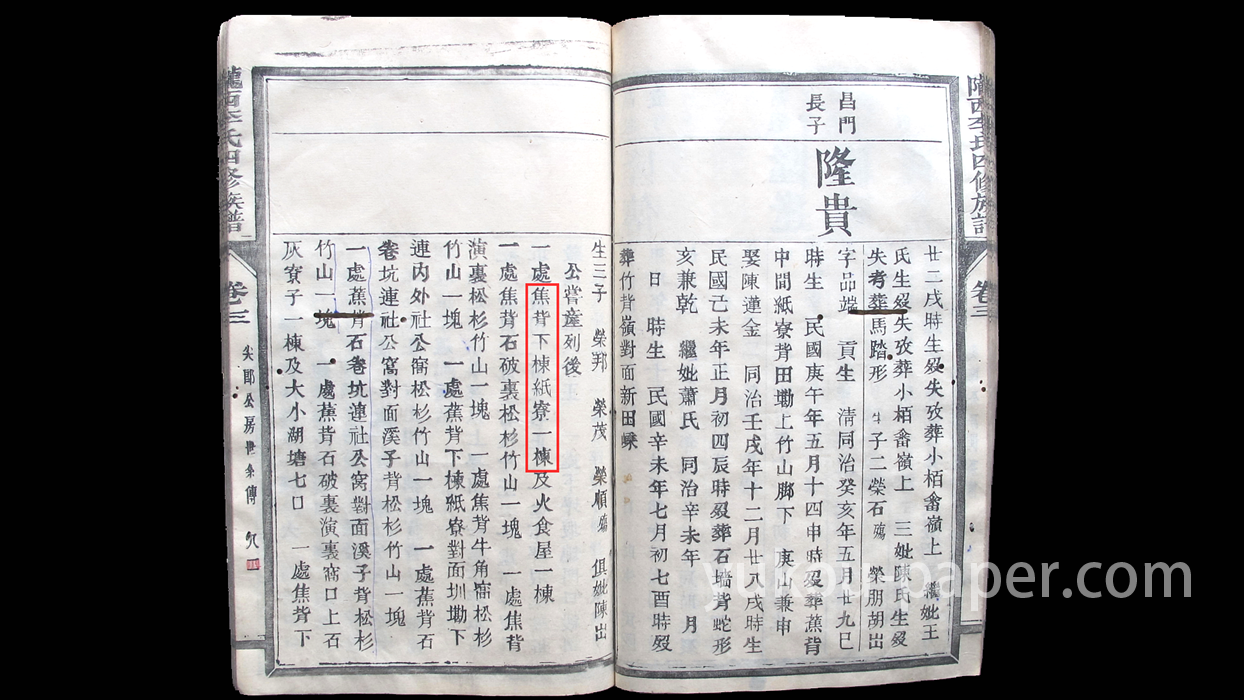 隴西李氏四修族譜
卷三
昌門
長子
隆貴
廿二戌時生歿失攷葬小栢畬嶺上 繼妣王
氏生歿失攷葬小栢畬嶺上 三妣陳氏生歿
失考葬馬踏形 生子二榮石殤 榮朋胡出
字品端 貢生 清同治癸亥年五月廿九巳
時生 民國庚午年五月十四申時歿葬蕉背
中間紙寮背田墈上竹山脚下 庚山兼申
娶陳蓮金 同治壬戌年十二月廿八戌時生
民國己未年正月初四辰時歿葬石墻背蛇形
亥兼乾 繼妣蕭氏 同治辛未年 月
日 時生 民國辛未年七月初七酉時歿
葬竹背嶺對面新田嵊
生三子 榮邦 榮茂 榮順殤 俱妣陳出
公嘗產列後
一處焦背下棟紙寮一棟及火食屋一棟
一處焦背石破裏松杉竹山一塊 一處焦背
演裏松杉竹山一塊 一處焦背牛角窩松杉
竹山一塊 一處蕉背下棟紙寮對面圳墈下
連內外社公窩松杉竹山一塊 一處蕉背石
卷坑連社公窩對面溪子背松杉竹山一塊
一處蕉背石卷坑連社公窩對面溪子背松杉
竹山一塊 一處蕉背石破裏演裏窩口上石
灰寮子一棟及大小湖塘七口 一處焦背下
隴西李氏四修族譜
卷三
尖郎公房世系傳
yukou-paper.com